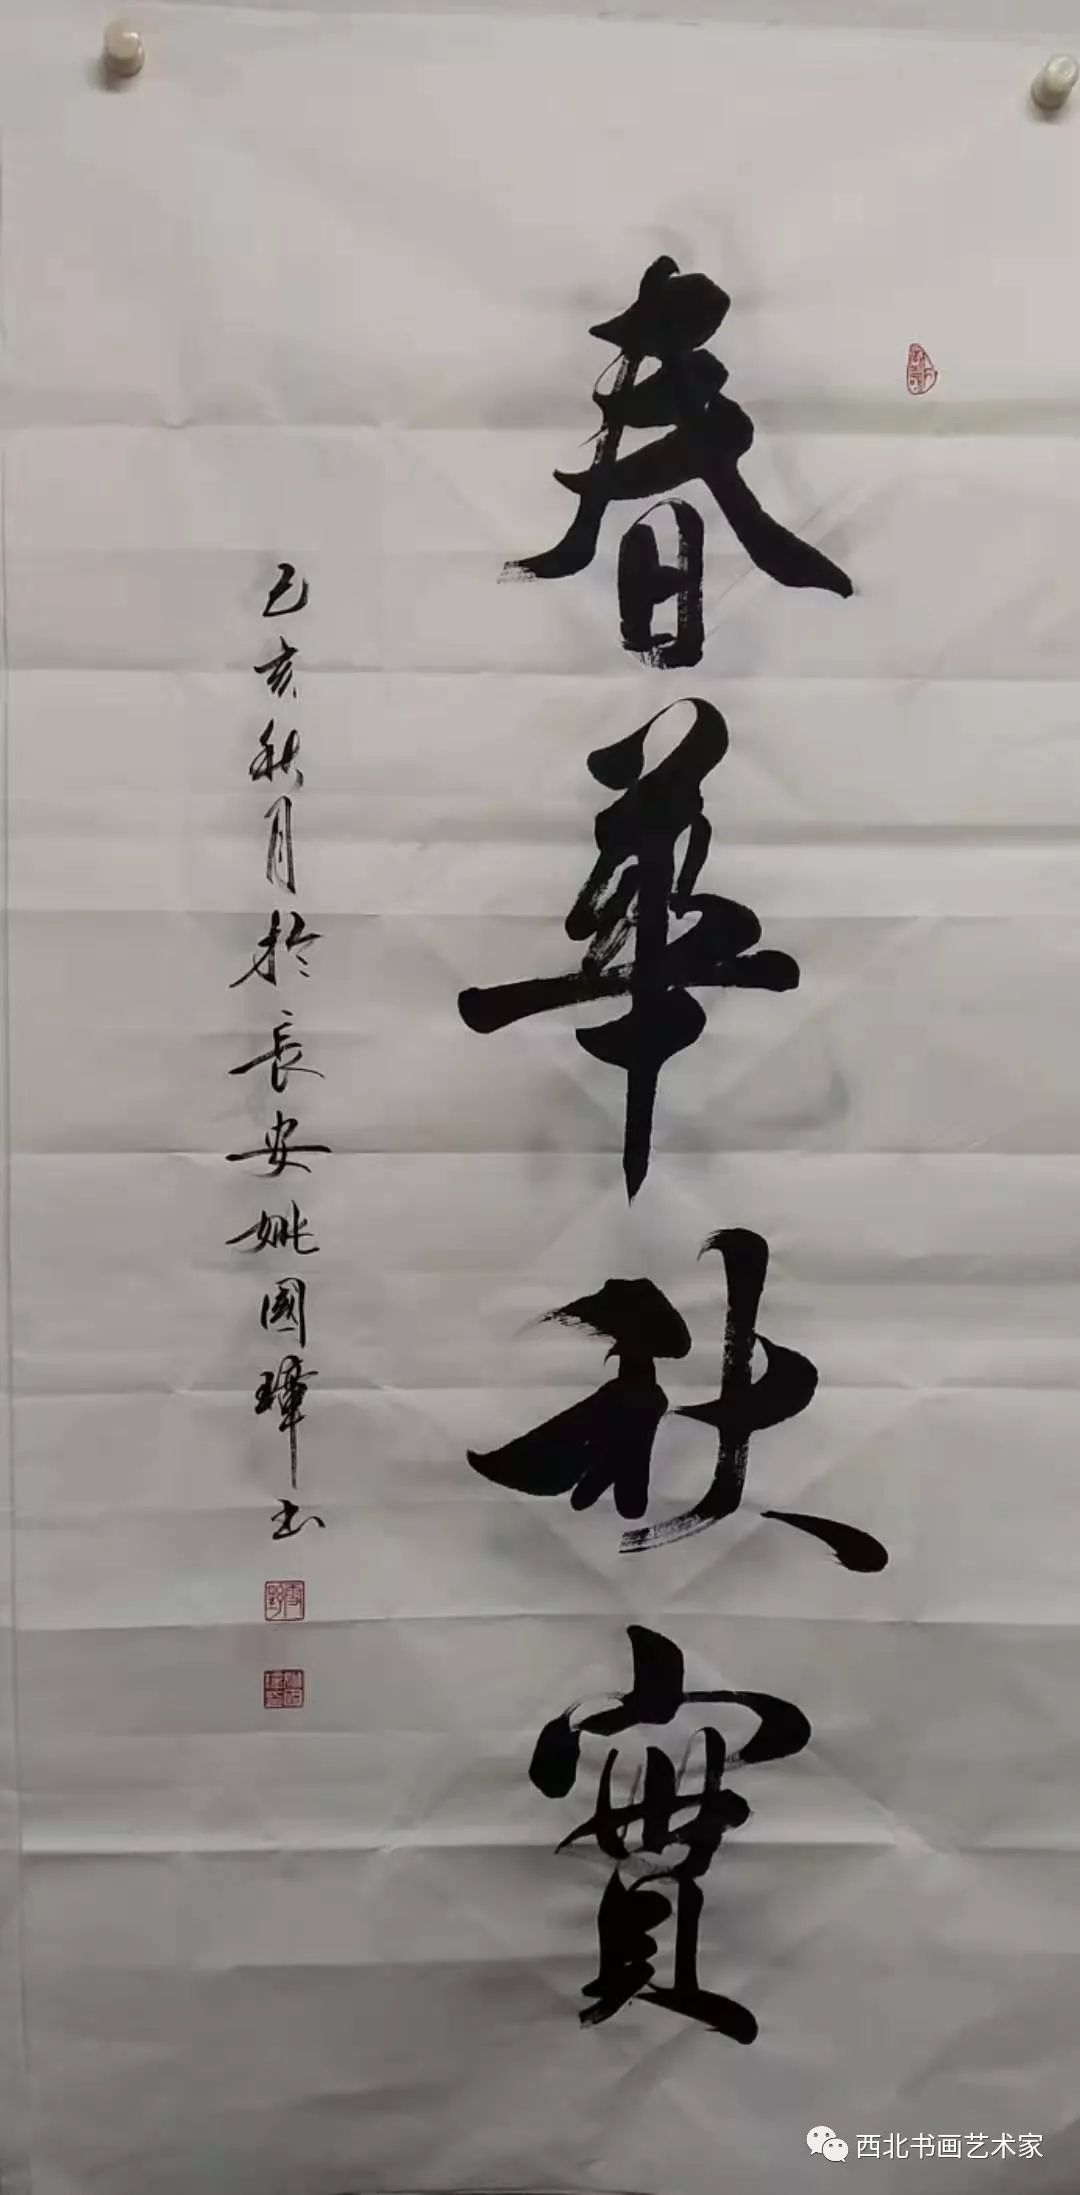 春華秋實
己亥秋月於長安姚國璋书
西北书画艺术家